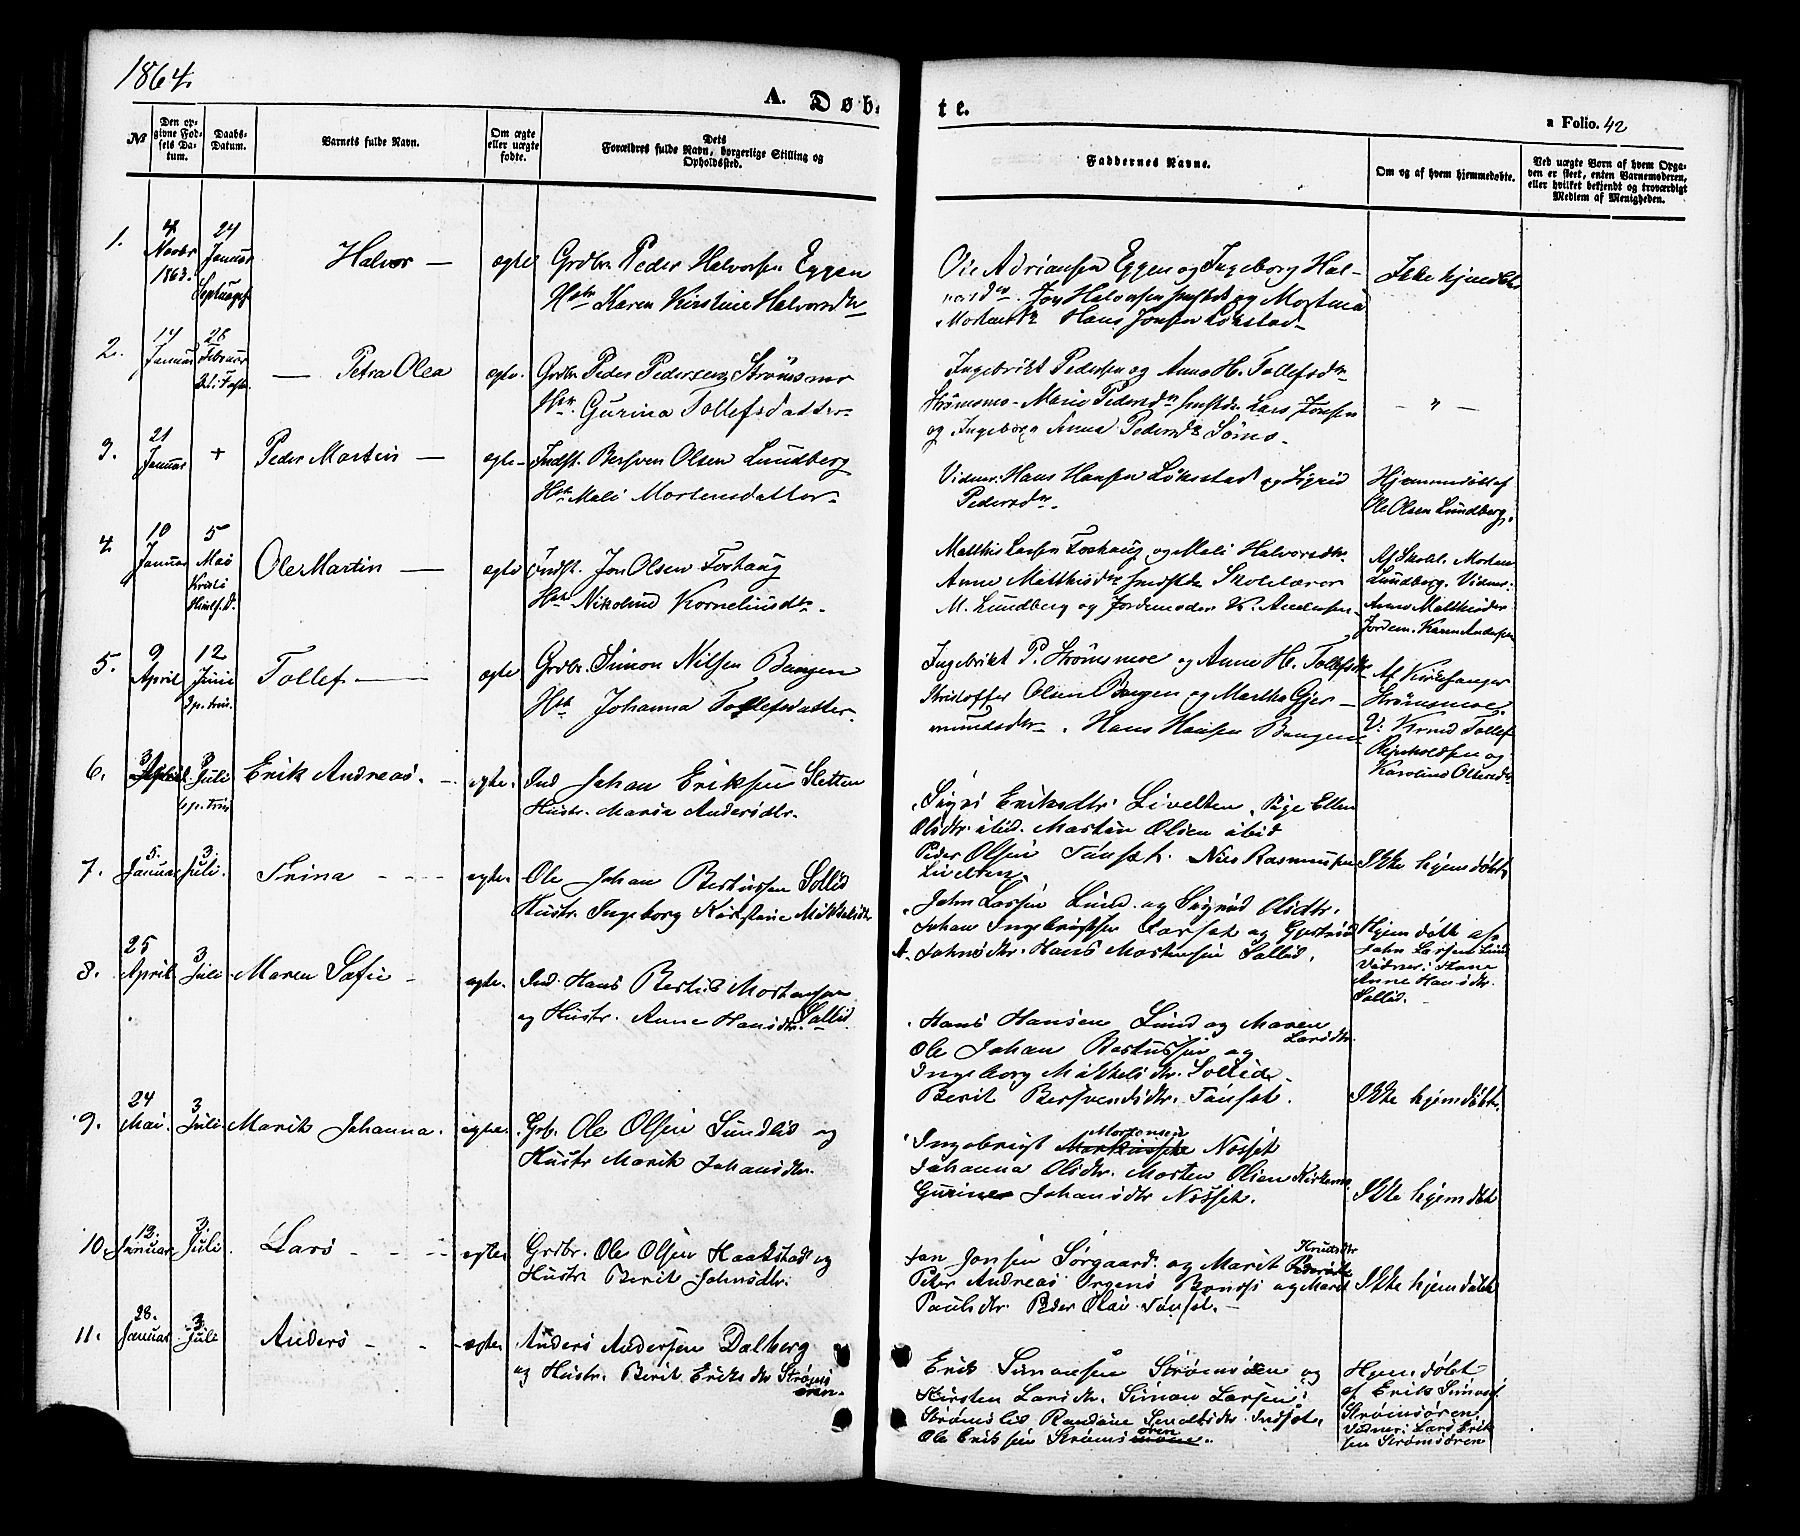 1864.
A. Døb-
te.
a Folio. 42
№
Den op-
givne Fød-
sels Da-
tum.
Daabs-
Datum.
Barnets fulde Navn.
Om ægte
eller uægte
fødte.
Dets
Forældres fulde Navn, borgerlige Stilling og
Opholdssted.
Faddernes Navne.
Om og af hvem hjemmedøbte.
Ved uægte Børn af hvem Opga-
ven er skeet, enten Barnemoderen,
eller hvilket bekjendt og troværdigt
Medlem af Menigheden.
1.
4
Novbr
1863.
24
Januar
Septuages.
Halvor —
ægte
Grdbr. Peder Halvorsen Eggen
Hstr Karen Kirstine Halvorsdtr
Ole Adriansen Eggen og Ingeborg Hal-
vorsdtr. Jon Halvorsen og
Hans Jonsen Løkstad
Ikke hjemdøbt
2.
14
Januar
28
Februar
— Petra Olea
ægte.
Grdbr. Peder Pedersen Strömsmo
Hstr. Gurina Tollefsdatter
Ingebrikt Pedersen og Anne H. Tollefsdtr
Strömsmo - Marie Pedersdtr Lars Jonsen
og Ingeborg Anna Pedersdtr
— " —
3.
21
Januar
+
Peder Martin —
ægte
Indst. Bersven Olsen Lundberg
Hstr Mali Mortensdatter
Vidner: Hans Hansen Löksstad og Sigrid
Pedersdtr.
Hjemmedöbt af
Ole Olsen Lundberg.
4.
10
Januar
5
Mai
Kristi
Himlf.D.
Ole Martin —
ægte
Indst. Jon Olsen Foshaug
Hstr Nikoline Korneliusdtr.
Matthis Larsen Foshaug og Mali Halvorsdtr.
Anne Matthisdtr Skolelærer
M. Lundberg og Jordemoder K. Andersen
Af Skolel. Morten
Lundberg. Vidner:
Anne Matthisdtr
Jordem. Karen Andersen
5.
9
April
12
Juni
3 p. trin.
Tollef —
ægte
Grdbr. Simon Nilsen Bangen
Hstr Johanna Tollefsdatter.
Ingebrikt P. Strömsmoe og Anne H. Tollefsdtr
Kristoffer Olsen Bangen og Martha Gjer-
mundsdtr. Hans Hansen Bangen
Af Kirkesanger
Strömsmoe.
V: Knud Tollef
Reinholdsen og
Karoline Olsensdtr
6.
3
April
3
Juli
6 p. trin
Erik Andreas.
ægte.
Ind Johan Eriksen Sletten
Hustr. Maria Andersdtr.
Sigri Eriksdtr. Livelten. Pige Ellen
Olsdtr. ibid. Martin Olsen ibid
Peder Olsen Tönset. Nils Rasmussen
Livelten.
Ikke hjemdöbt
7.
5.
Januar
3.
Juli.
Trina
ægte.
Ole Johan Bertussen Sollid
Hustr. Ingeborg Kirstine Mikkelsdtr
John Larsen Lund og Sigrid Olsdtr.
Johan Ingebrigtsen og Gjertrud
A. Johnsdtr. Hans Mortensen Sollid.
Hjemdöbt af
John Larsen Lund
Vidner:
Anne Hansdtr.
Sollid.
8.
25
April
3
Juli
Maren Sofie
ægte.
Ind. Hans Bertus Mortensen
og Hustr. Anne Hansdtr. Sollid.
Hans Hansen Lund og Maren
Larsdtr.
Ole Johan Bertussen og
Ingeborg Mikkelsdtr. Sollid
Berit Bersvendsdtr. Tönset.
Ikke hjemdöbt.
9.
24
Mai.
3
Juli
Marit Johanna.
ægte.
Grb. Ole Olsen Sundlid og
Hustr Marit Johansdtr.
Mortensen
Ingebrigt Nosset
Johanna Olsdtr. Morten Olsen Kirkemo
Gurine Johansdtr Nosset.
Ikke hjemdöbt
10.
13.
Januar
3.
Juli
Lars
ægte.
Grdbr. Ole Olsen Haakstad og
Hustr Berit Johnsdtr.
Knutsdtr
Jon Jonsen Sörgaard og Marit
Peter Andreas og Marit
Paulsdtr. Peder Olai Tönset.
Ikke hjemdöbt
11.
28.
Januar
3.
Juli
Anders
ægte
Anders Andersen Dalberg
og Hustr. Berit Eriksdtr Ströms-
ören.
Erik Simonsen Strömsören og
Kirsten Larsdtr. Simon Larsen
Strömslid Indset,
ören
Ole Eriksen Ströms moen.
Hjemdöbt
af Erik Simons.
Strömsören
Vidner: Lars Erik
sen Strömsören